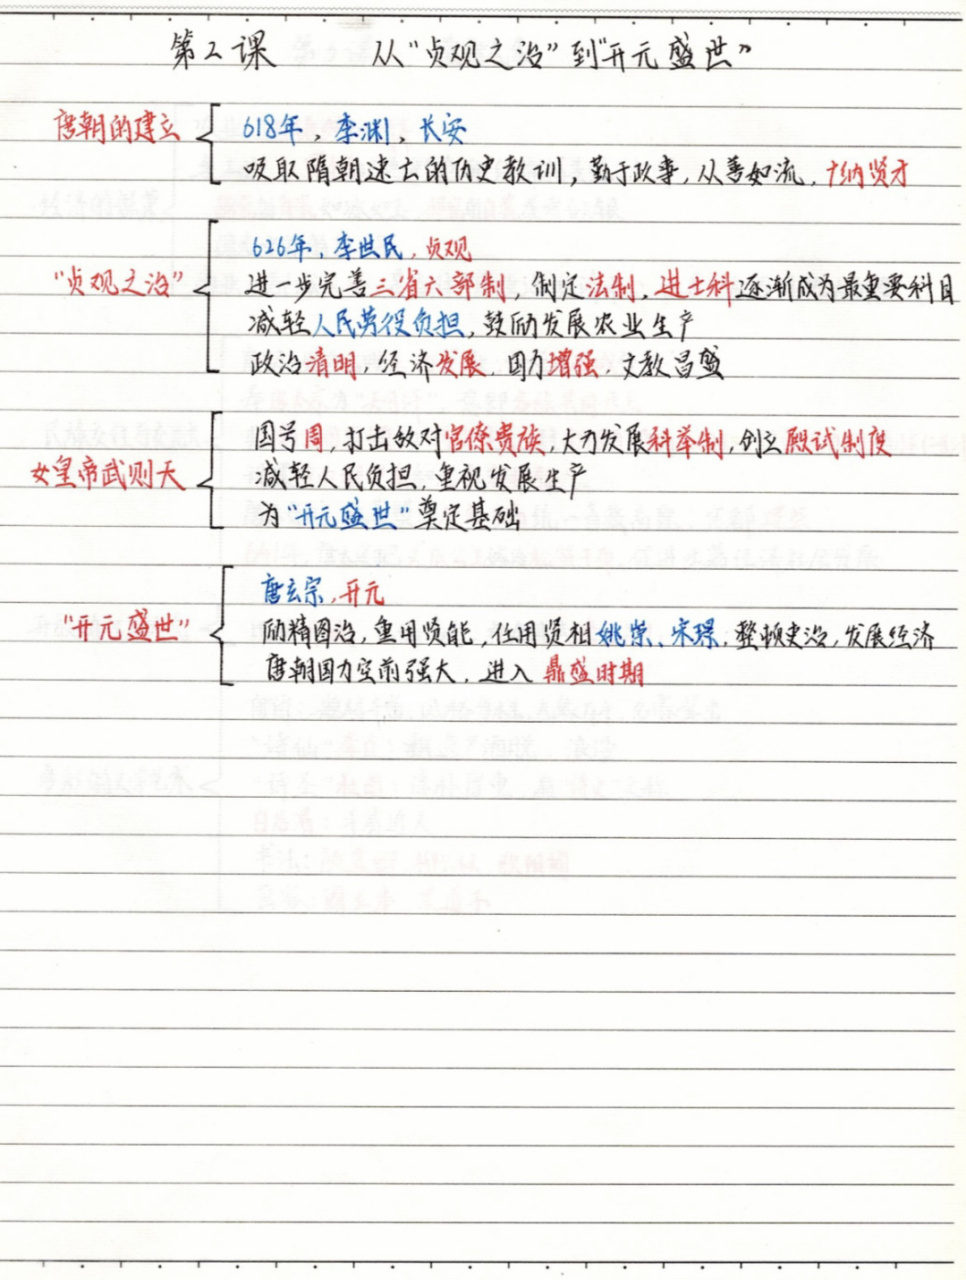 第2课 从“贞观之治”到“开元盛世”
唐朝的建立
618年，李渊，长安
吸取隋朝速亡的历史教训，勤于政事，从善如流，广纳贤才
“贞观之治”
626年，李世民，贞观
进一步完善三省六部制，制定法制，进士科逐渐成为最重要科目
减轻人民劳役负担，鼓励发展农业生产
政治清明，经济发展，国力增强，文教昌盛
女皇帝武则天
国号周，打击敌对官僚贵族，大力发展科举制，创立殿试制度
减轻人民负担，重视发展生产
为“开元盛世”奠定基础
“开元盛世”
唐玄宗，开元
励精图治，重用贤能，任用贤相姚崇、宋璟，整顿吏治，发展经济
唐朝国力空前强大，进入鼎盛时期